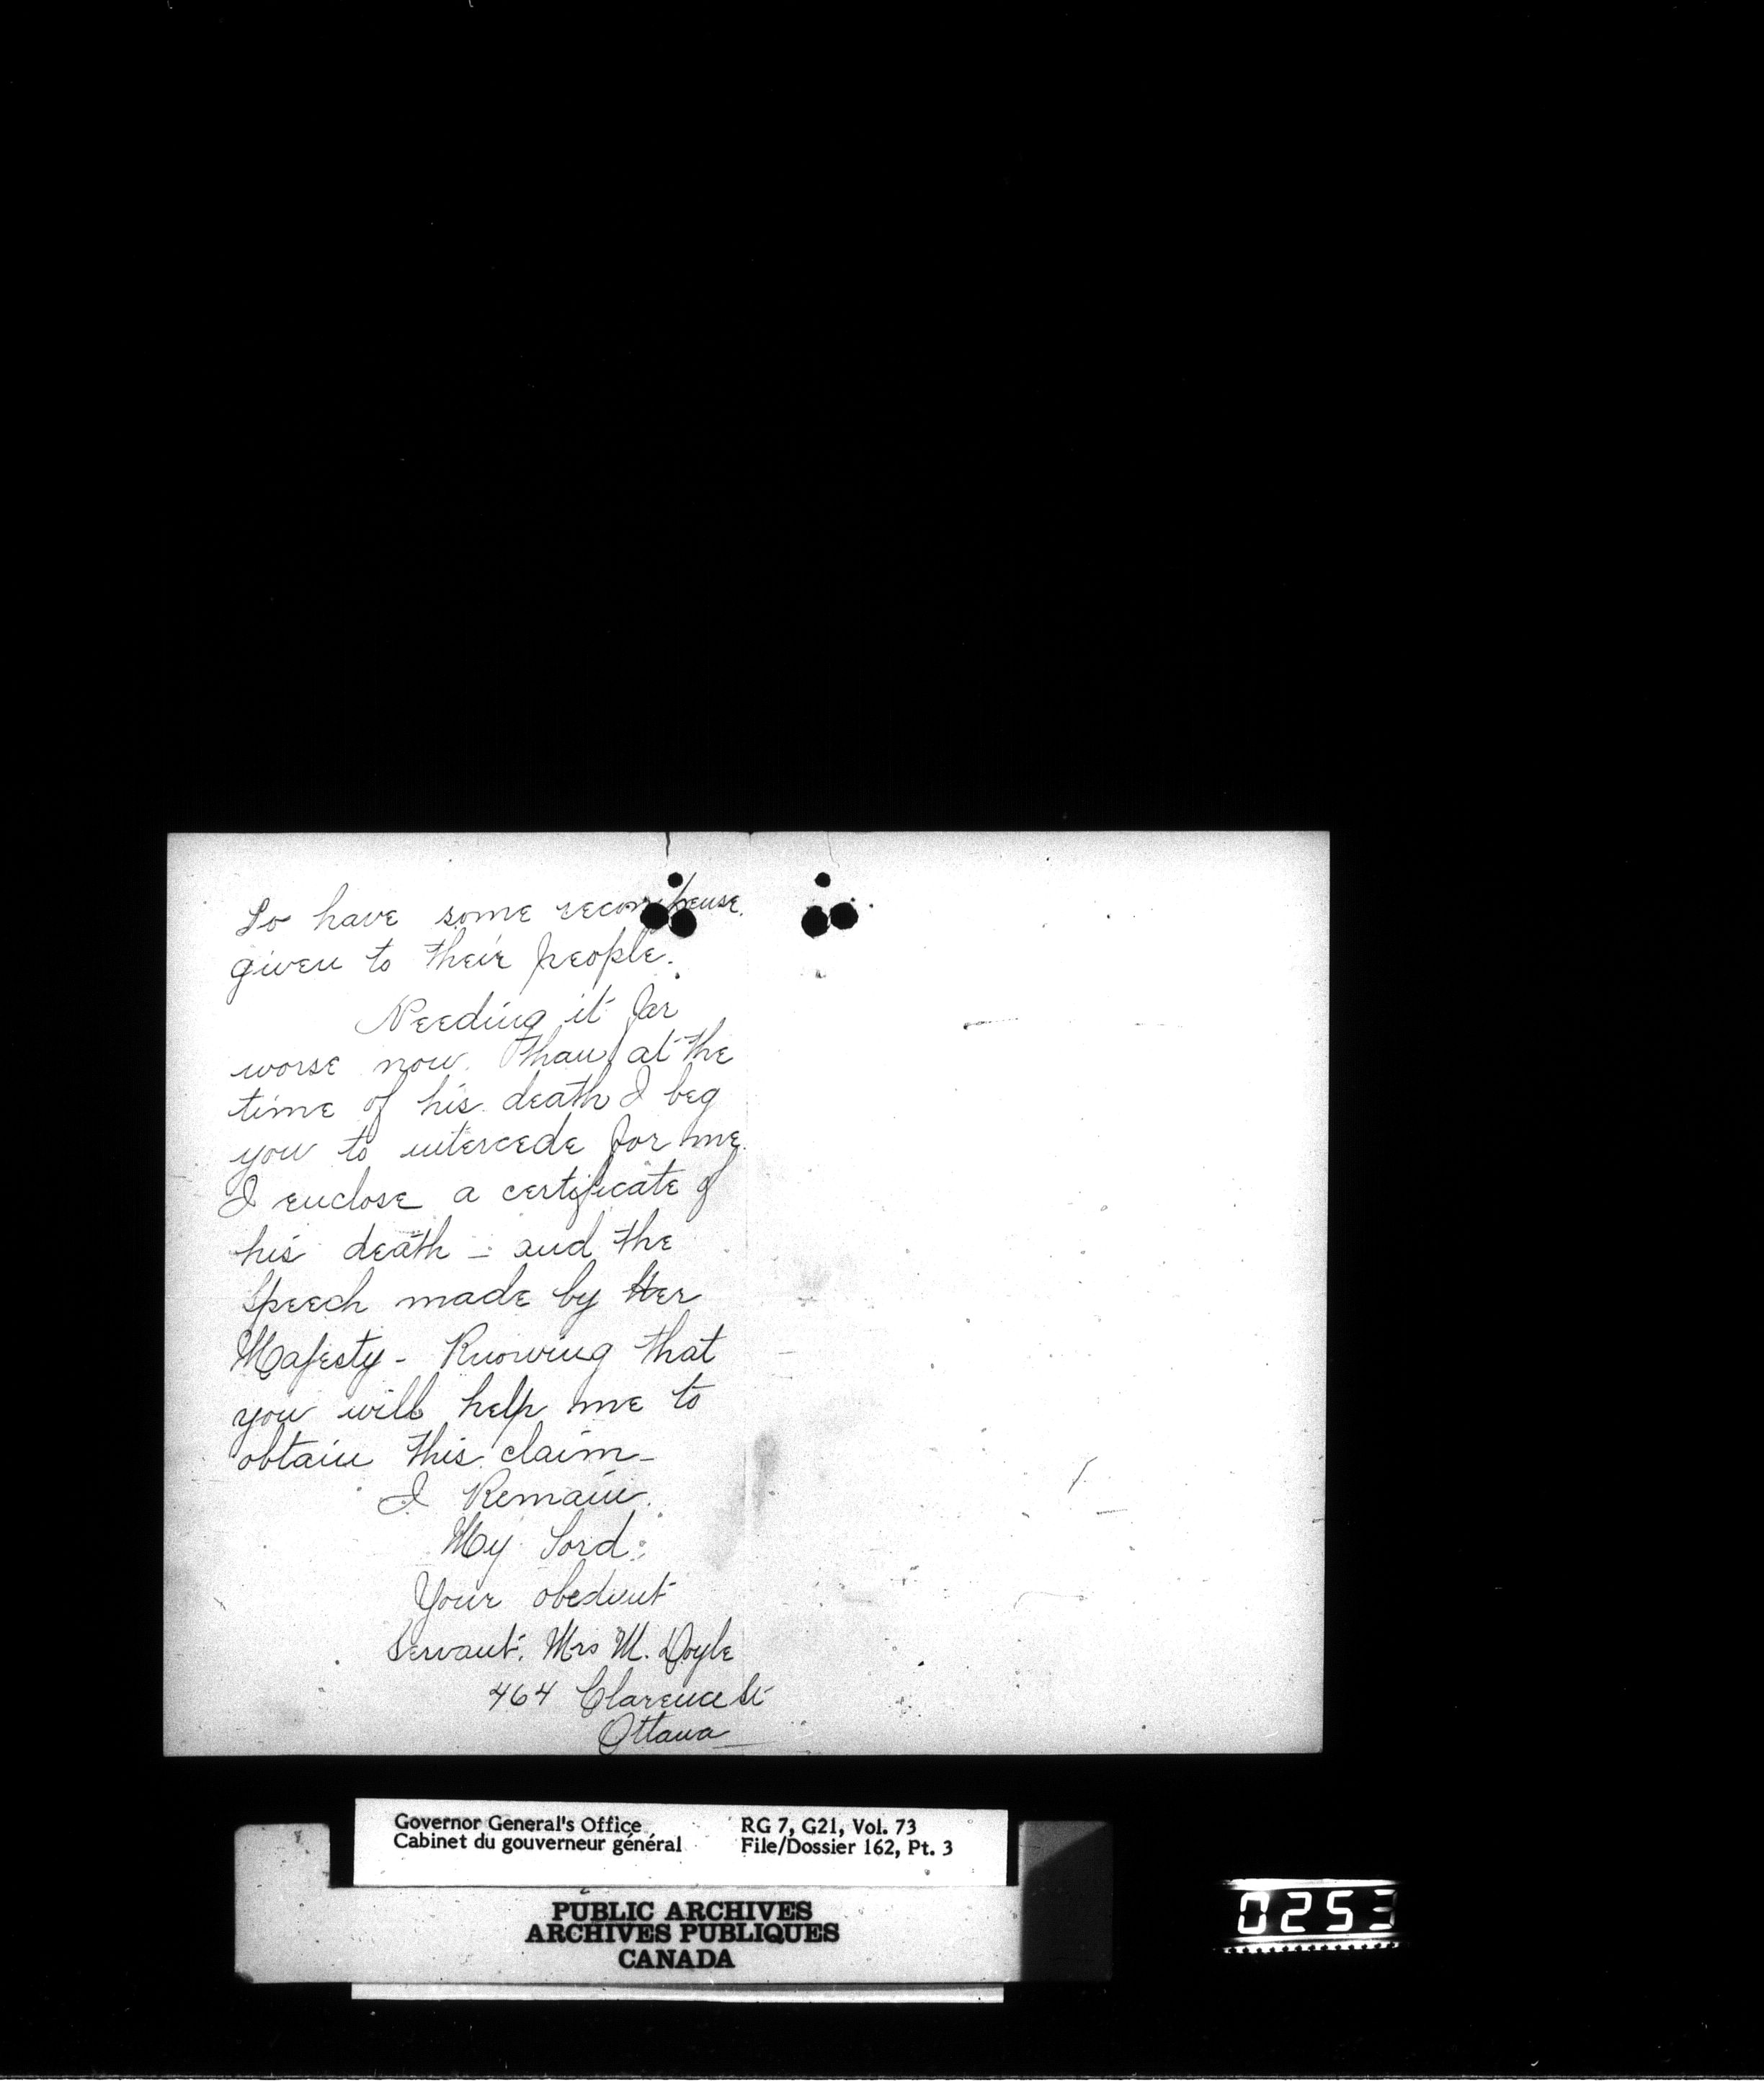 To have some recompense
given to their people.
Needing it far
worse now. than at the
time of his death I beg
you to intercede for me.
I enclose a certificate of
his death - and the
Speech made by Her
Majesty - Knowing that
you will help me to
obtain this claim -
I Remain.
My Lord:
Your obedient
Servant. Mrs M. Doyle
464 Clarence St
Ottawa
Governor General's Office
Cabinet du gouverneur général
RG 7, G21, Vol. 73
File/Dossier 162, Pt. 3
PUBLIC ARCHIVES
ARCHIVES PUBLIQUES
CANADA
0253